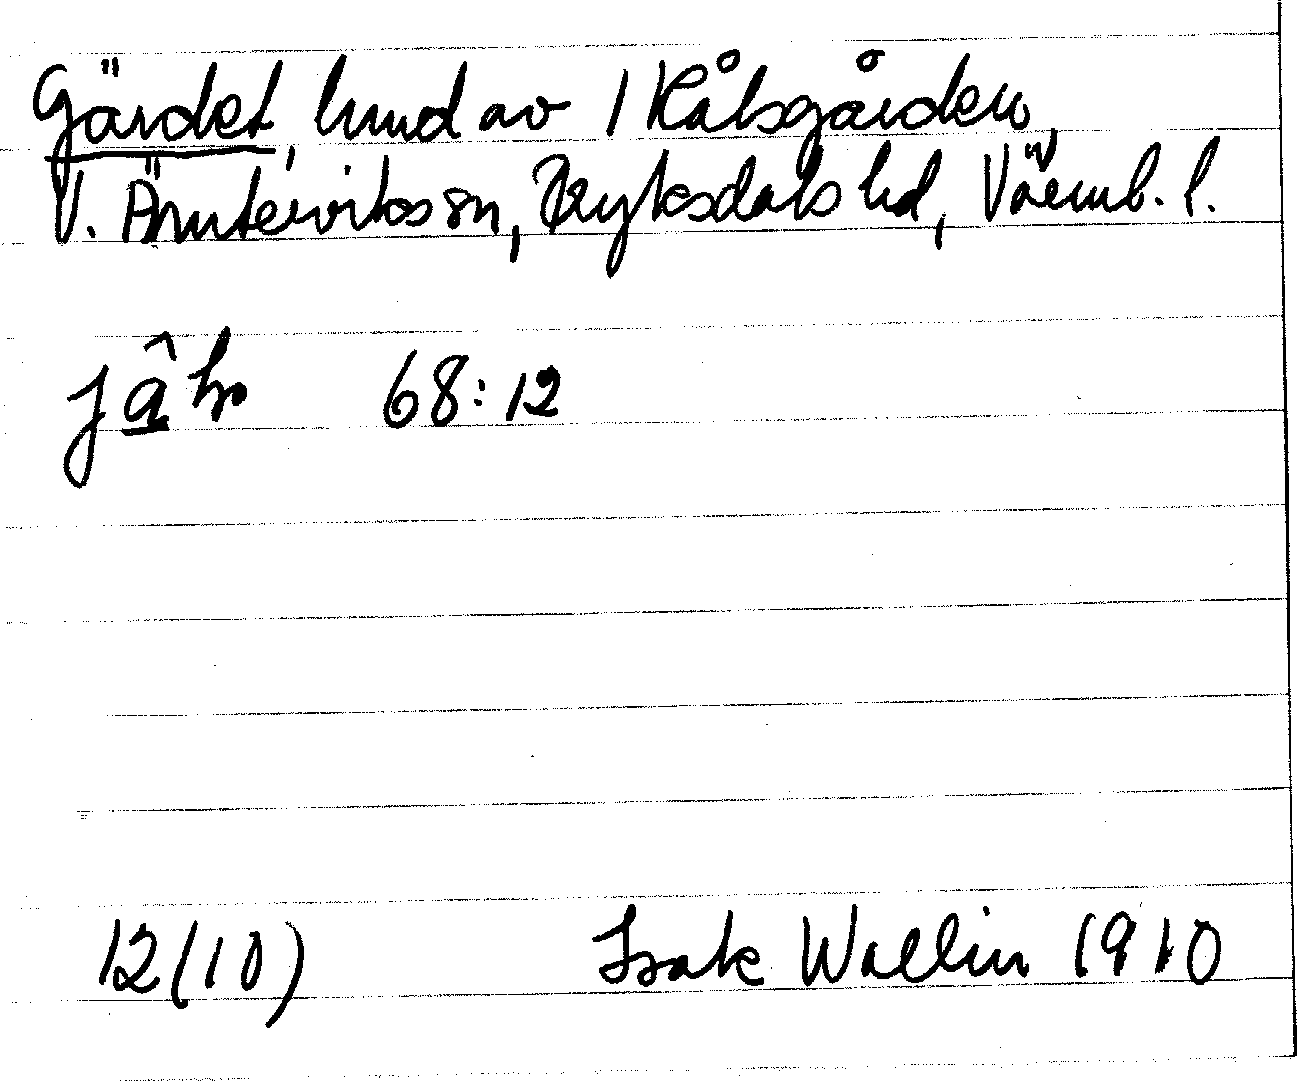 Gärdet, hmd av 1 Kålsgården,
V. Ämterviks sn, Fryksdals hd, Värml. l.
jâ̱ḷə 68:12
12(10) Isak Wallin 1910